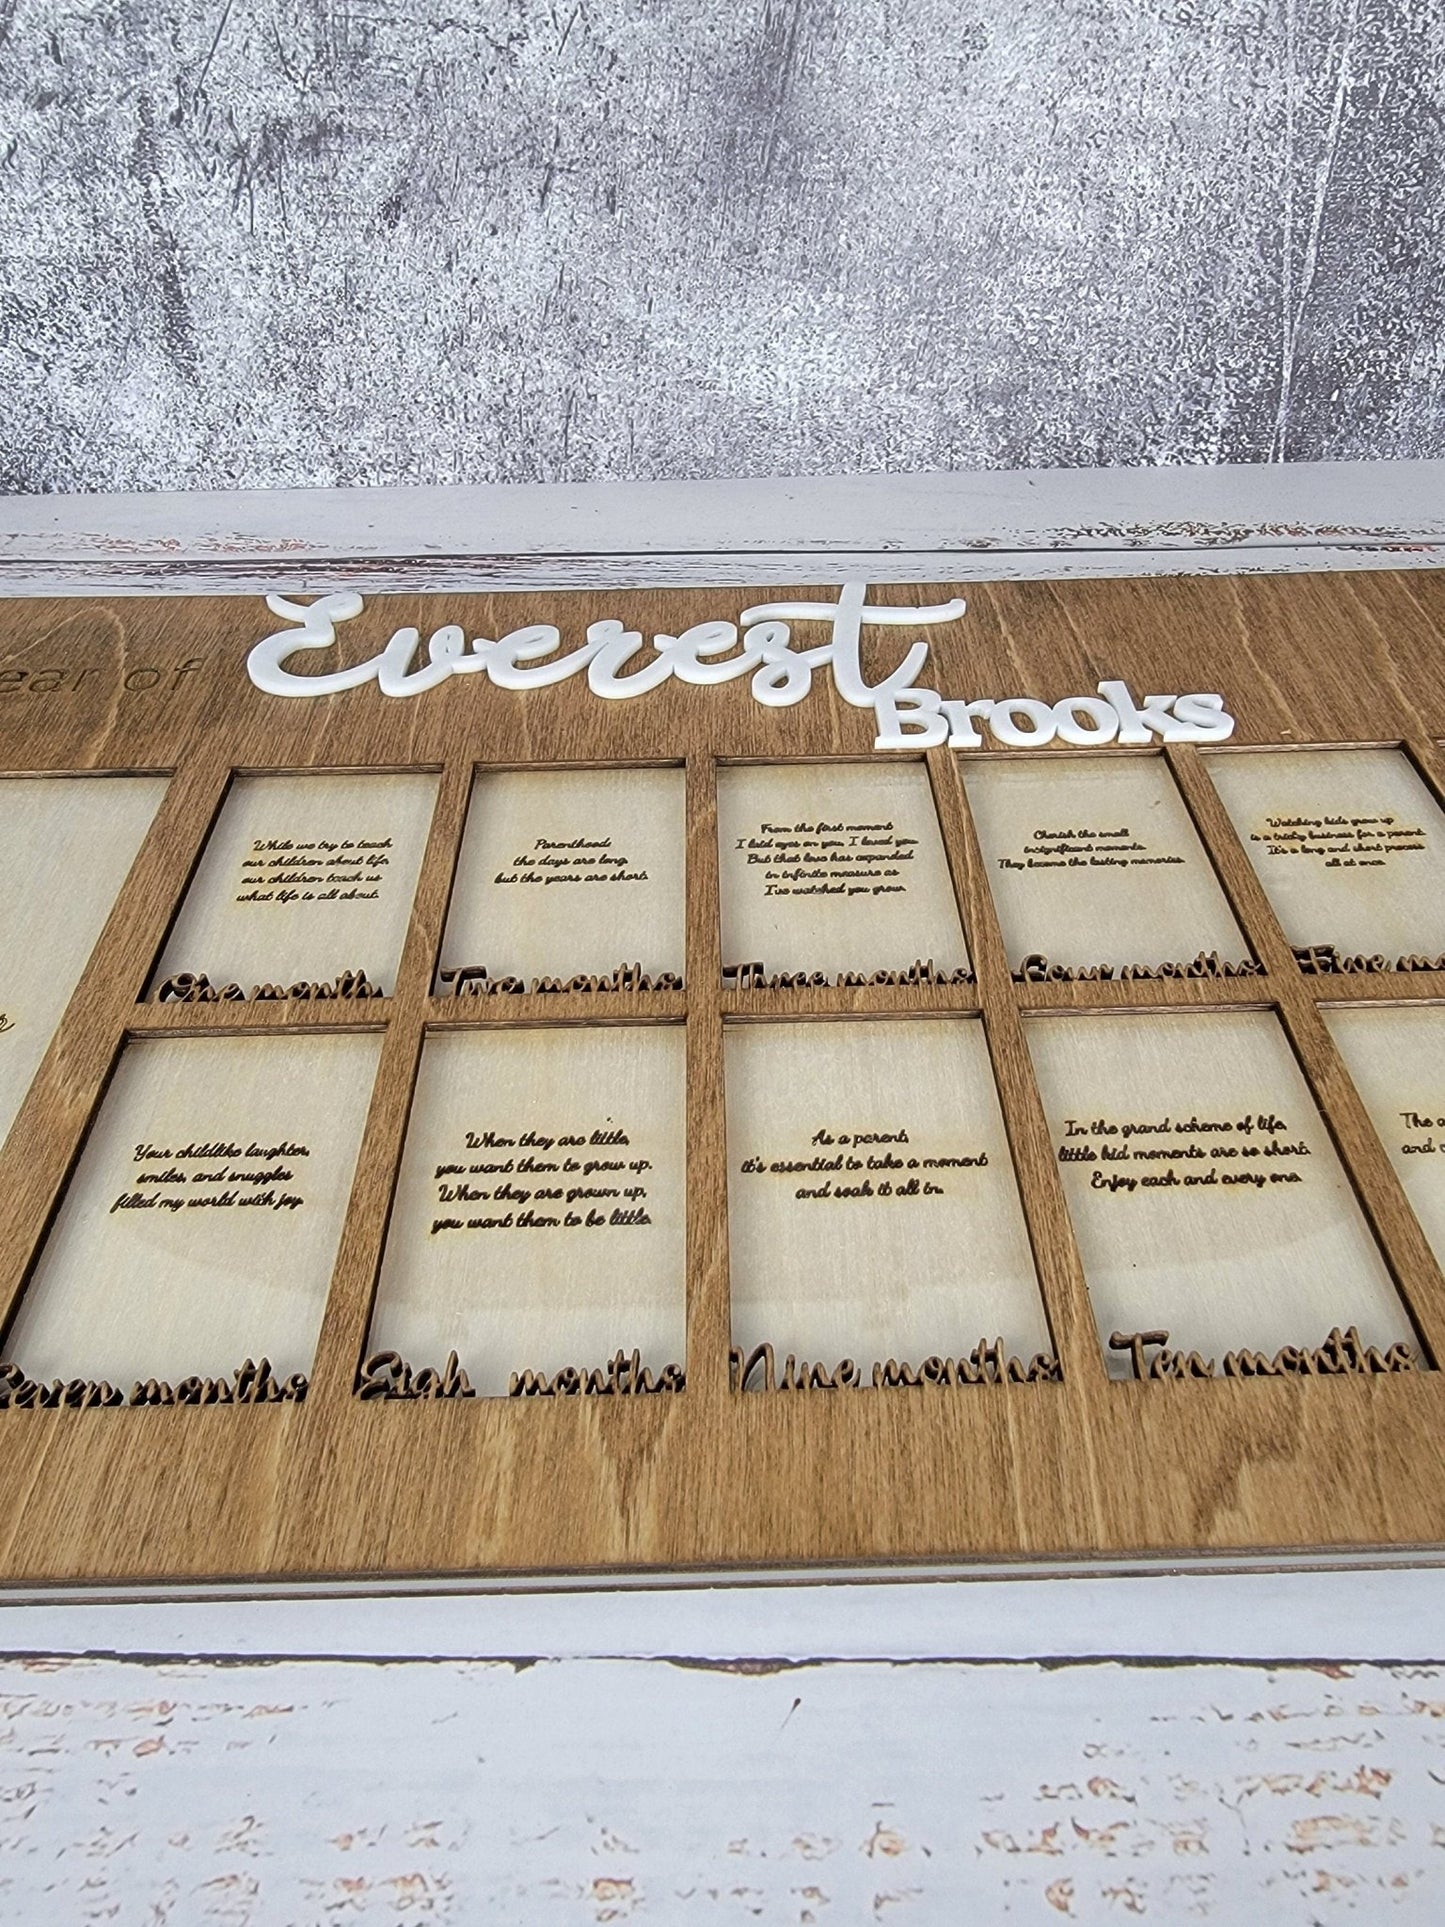 ear of
Everest
Brooks
While we try to teach
our children about life,
our children teach us
what life is all about.
One month
Parenthood:
the days are long,
but the years are short.
Two months
From the first moment
I laid eyes on you, I loved you.
But that love has expanded
in infinite measure as
I've watched you grow.
Three months
Cherish the small
insignificant moments.
They become the lasting memories.
Four months
Watching kids grow up
is a tricky business for a parent.
It's a long and short process
all at once.
Five mo
Your childlike laughter,
smiles, and snuggles
filled my world with joy.
Seven months
When they are little,
you want them to grow up.
When they are grown up,
you want them to be little.
Eigh months
As a parent,
it's essential to take a moment
and soak it all in.
Nine months
In the grand scheme of life,
little kid moments are so short.
Enjoy each and every one.
Ten months
The
and